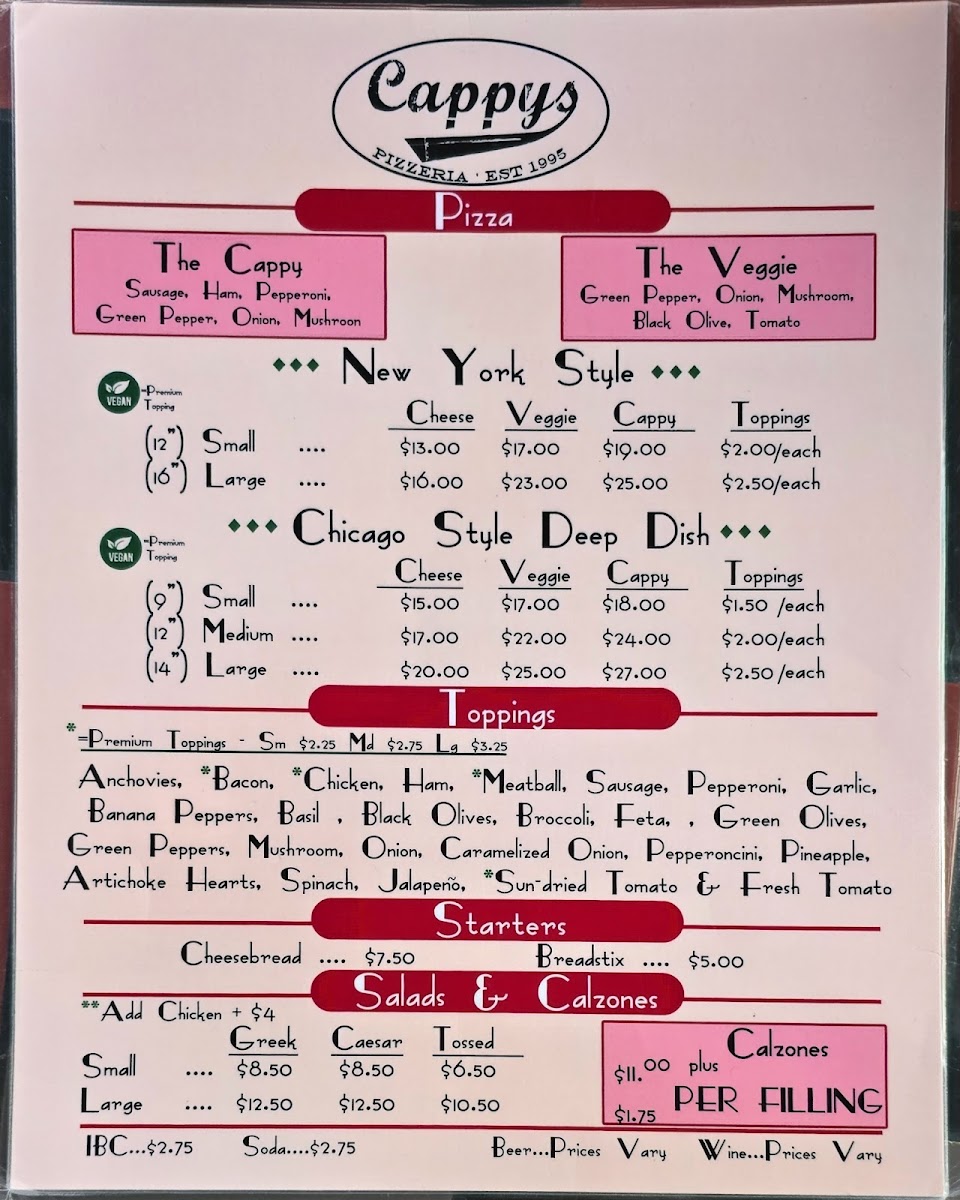 Cappys
PIZZERIA · EST 1995
Pizza
The Cappy
Sausage, Ham, Pepperoni,
Green Pepper, Onion, Mushroon
The Veggie
Green Pepper, Onion, Mushroom,
Black Olive, Tomato
♦♦♦ New York Style ♦♦♦
VEGAN =Premium
Topping
Cheese Veggie Cappy Toppings
(12") Small .... $13.00 $17.00 $19.00 $2.00/each
(16") Large .... $16.00 $23.00 $25.00 $2.50/each
♦♦♦ Chicago Style Deep Dish ♦♦♦
VEGAN =Premium
Topping
Cheese Veggie Cappy Toppings
(9") Small .... $15.00 $17.00 $18.00 $1.50 /each
(12") Medium .... $17.00 $22.00 $24.00 $2.00/each
(14") Large .... $20.00 $25.00 $27.00 $2.50/each
Toppings
*=Premium Toppings - Sm $2.25 Md $2.75 Lg $3.25
Anchovies, *Bacon, *Chicken, Ham, *Meatball, Sausage, Pepperoni, Garlic,
Banana Peppers, Basil , Black Olives, Broccoli, Feta, , Green Olives,
Green Peppers, Mushroom, Onion, Caramelized Onion, Pepperoncini, Pineapple,
Artichoke Hearts, Spinach, Jalapeño, *Sun-dried Tomato & Fresh Tomato
Starters
Cheesebread .... $7.50 Breadstix .... $5.00
Salads & Calzones
**Add Chicken + $4
Greek Caesar Tossed
Small .... $8.50 $8.50 $6.50
Large .... $12.50 $12.50 $10.50
Calzones
$11.00 plus
$1.75 PER FILLING
IBC...$2.75 Soda....$2.75 Beer...Prices Vary Wine...Prices Vary